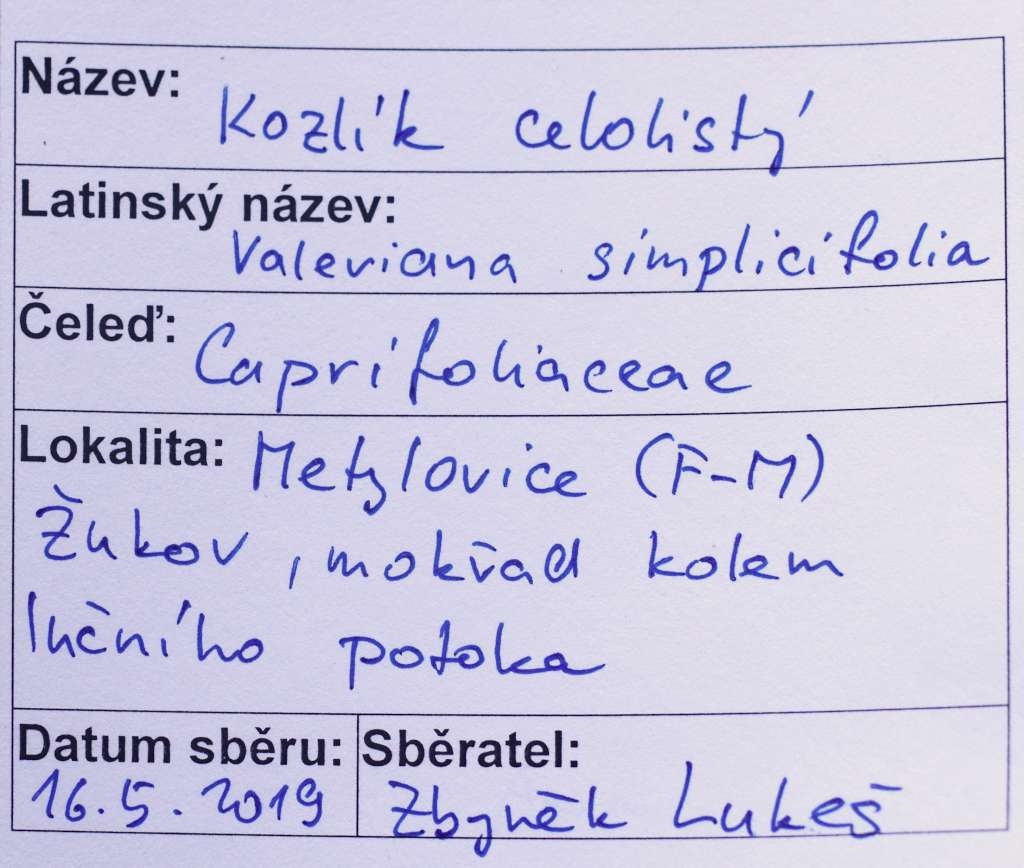 Název: Kozlík celolistý
Latinský název:
Valeriana simplicifolia
Čeleď: Caprifoliaceae
Lokalita: Metylovice (F-M)
Žukov, mokřad kolem
lučního potoka
Datum sběru: Sběratel:
16.5.2019 Zbyněk Lukeš